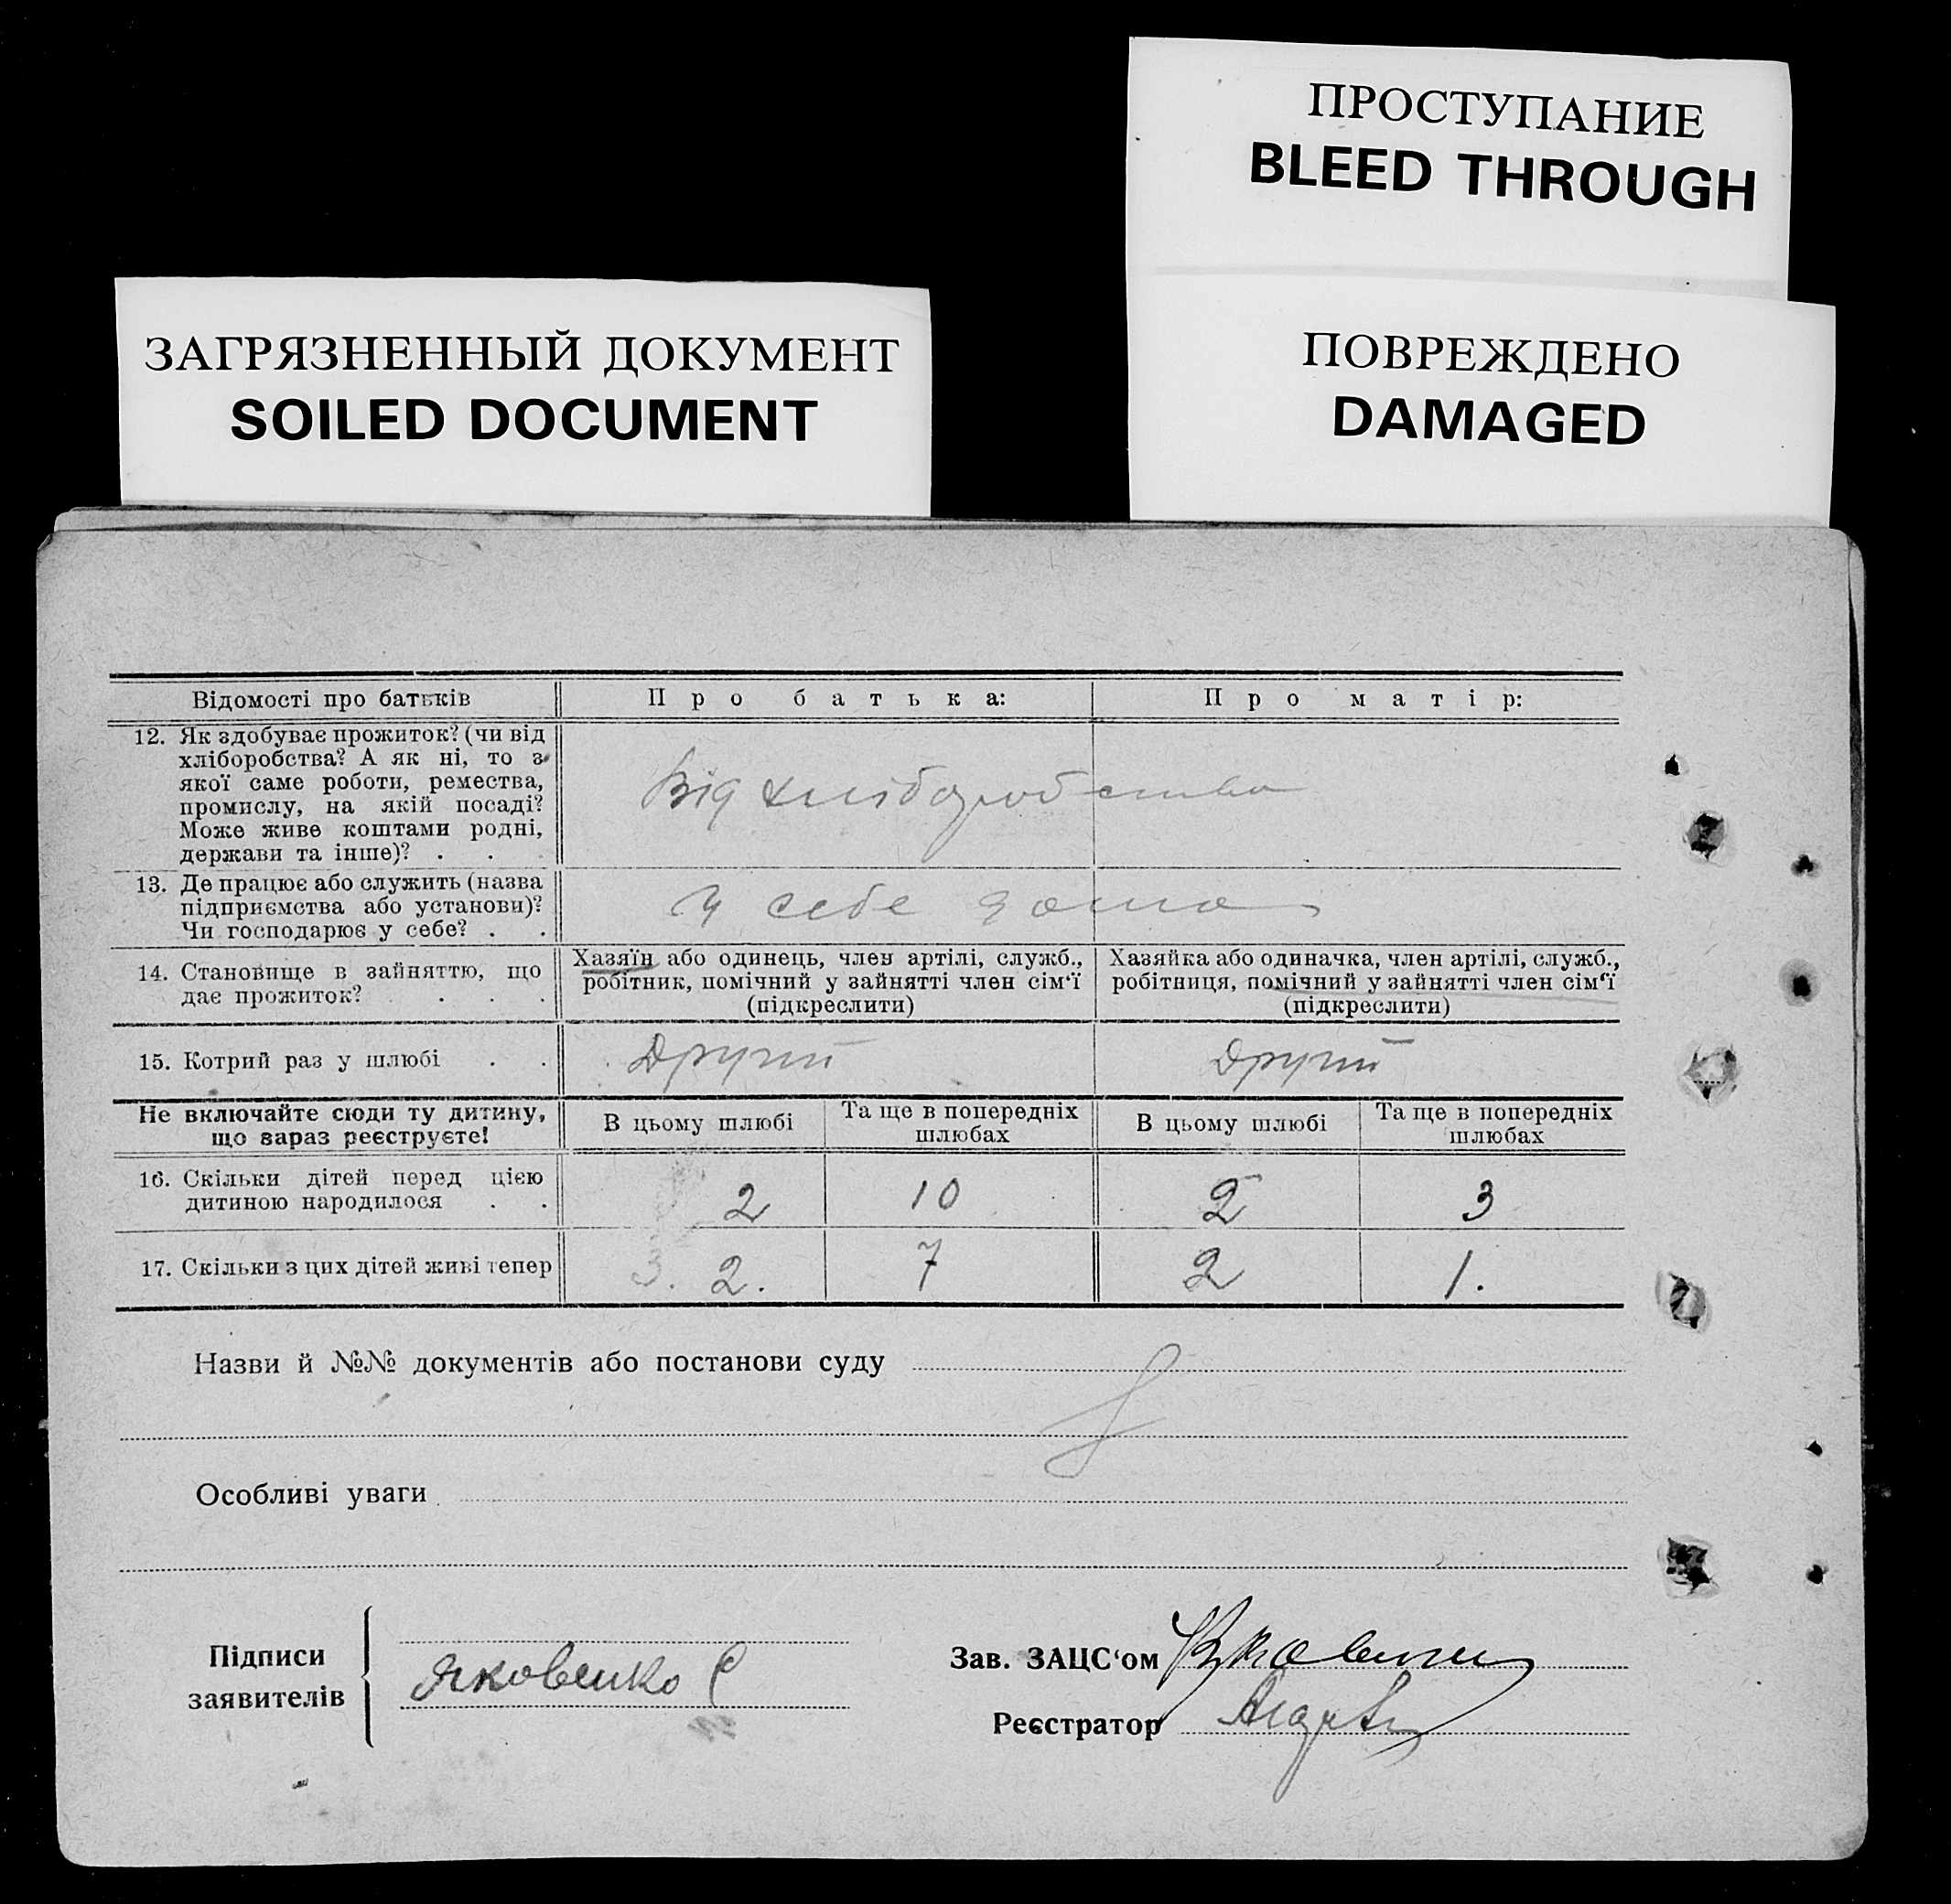 ПРОСТУПАНИЕ
BLEED THROUGH
ЗАГРЯЗНЕННЫЙ ДОКУМЕНТ
SOILED DOCUMENT
ПОВРЕЖДЕНО
DAMAGED
Відомості про батьків
Про батька:
Про матір:
12. Як здобуває прожиток? (чи від
хліборобства? А як ні, то з
якої саме роботи, ремества,
промислу, на якій посаді?
Може живе коштами родні,
держави та інше)? . .
Від хліборобства
13. Де працює або служить (назва
підприємства або установи)?
Чи господарює у себе? . .
У себе дома
14. Становище в зайняттю, що
дає прожиток? . . .
Хазяїн або одинець, член артілі, служб.,
робітник, помічний у зайнятті член сім‘ї
(підкреслити)
Хазяйка або одиначка, член артілі, служб.,
робітниця, помічний у зайнятті член сім‘ї
(підкреслити)
15. Котрий раз у шлюбі . .
Другий
Другий
Не включайте сюди ту дитину,
що зараз реєструєте!
В цьому шлюбі
Та ще в попередніх
шлюбах
В цьому шлюбі
Та ще в попередніх
шлюбах
16. Скільки дітей перед цією
дитиною народилося . .
2
10
2
3
17. Скільки з цих дітей живі тепер
3. 2.
7
2
1.
Назви й №№ документів або постанови суду
Особливі уваги
Підписи
заявителів
Яковенко С
Зав. ЗАЦС‘ом
Реєстратор